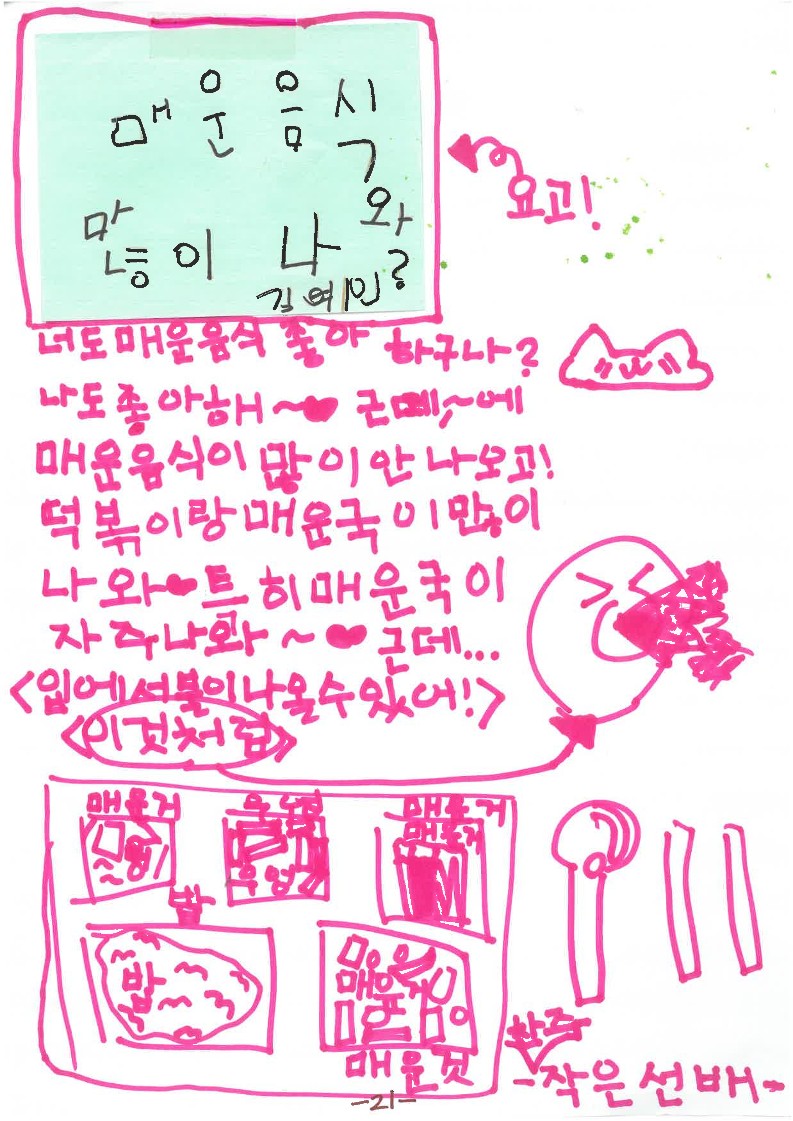 매운음식
많이 나와?
김예인
요고!
너도매운음식 좋아 하구나?
나도좋아해~♥ 근데~에
매운음식이 많이안나오고!
떡볶이랑매운국이많이
나와~♥특히매운국이
자주나와~♥근데...
<입에서불이나올수있어!>
<이것처럼>
매운거
매운거
매운거
밥
밥
매운것
한주
-작은선배-
-21-